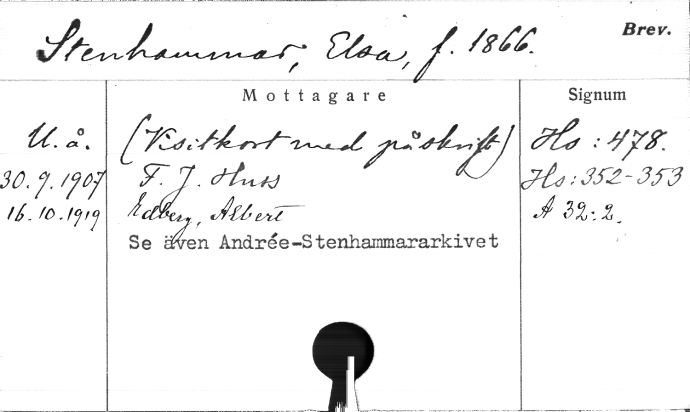 Stenhammar, Elsa, f. 1866. Brev.
Mottagare Signum
U. å. (Visitkort med påskrift) Hs : 478.
30.9.1907 F. J. Huss Hs : 352-353
16.10.1919 Edberg, Albert A 32:2.
Se även Andrée-Stenhammararkivet